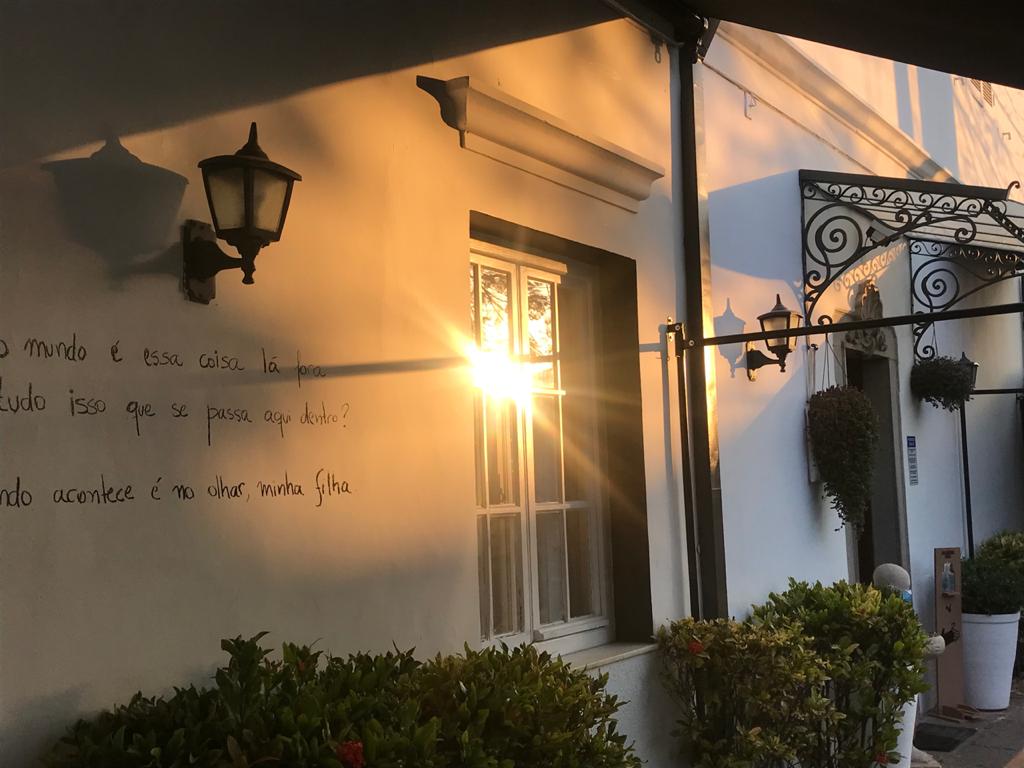 o mundo é essa coisa lá fora
tudo isso que se passa aqui dentro?
ndo acontece é no olhar, minha filha